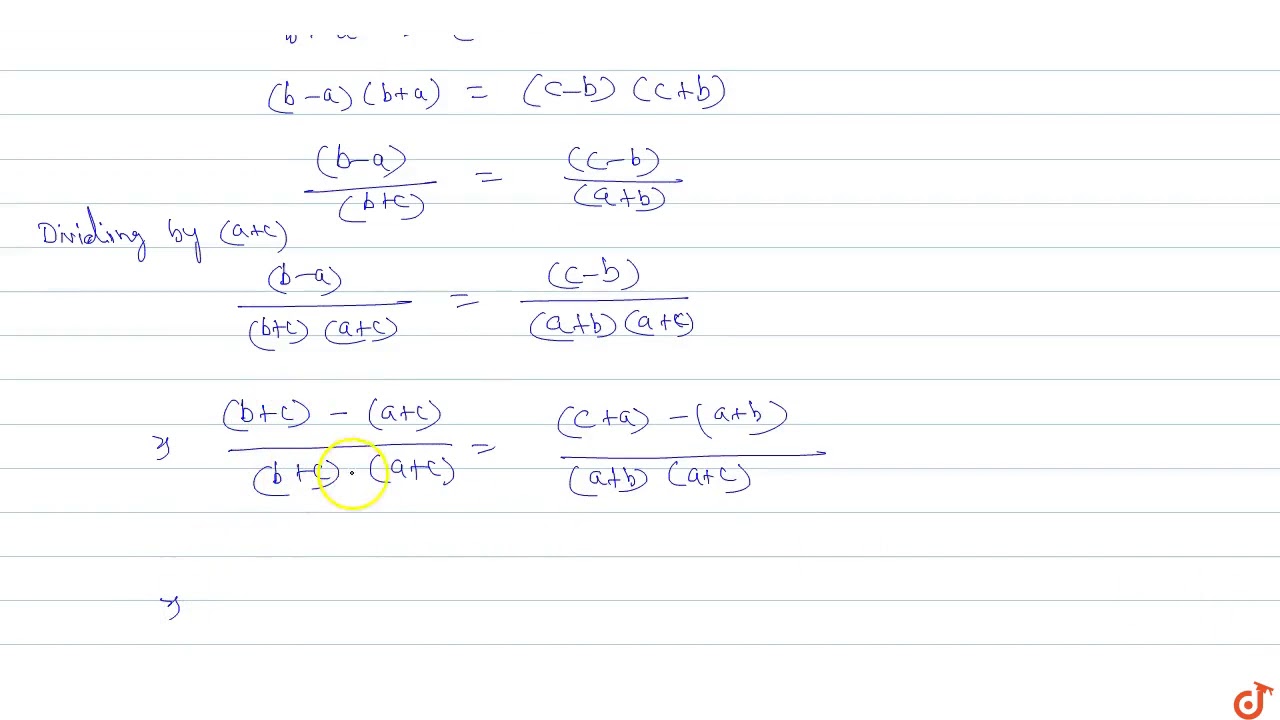 (b-a) (b+a) = (c-b) (c+b)
(b-a)/(b+c) = (c-b)/(a+b)
Dividing by (a+c)
(b-a)/(b+c) (a+c) = (c-b)/(a+b) (a+c)
⇒ (b+c) - (a+c)/(b+c) · (a+c) = (c+a) - (a+b)/(a+b) (a+c)
⇒